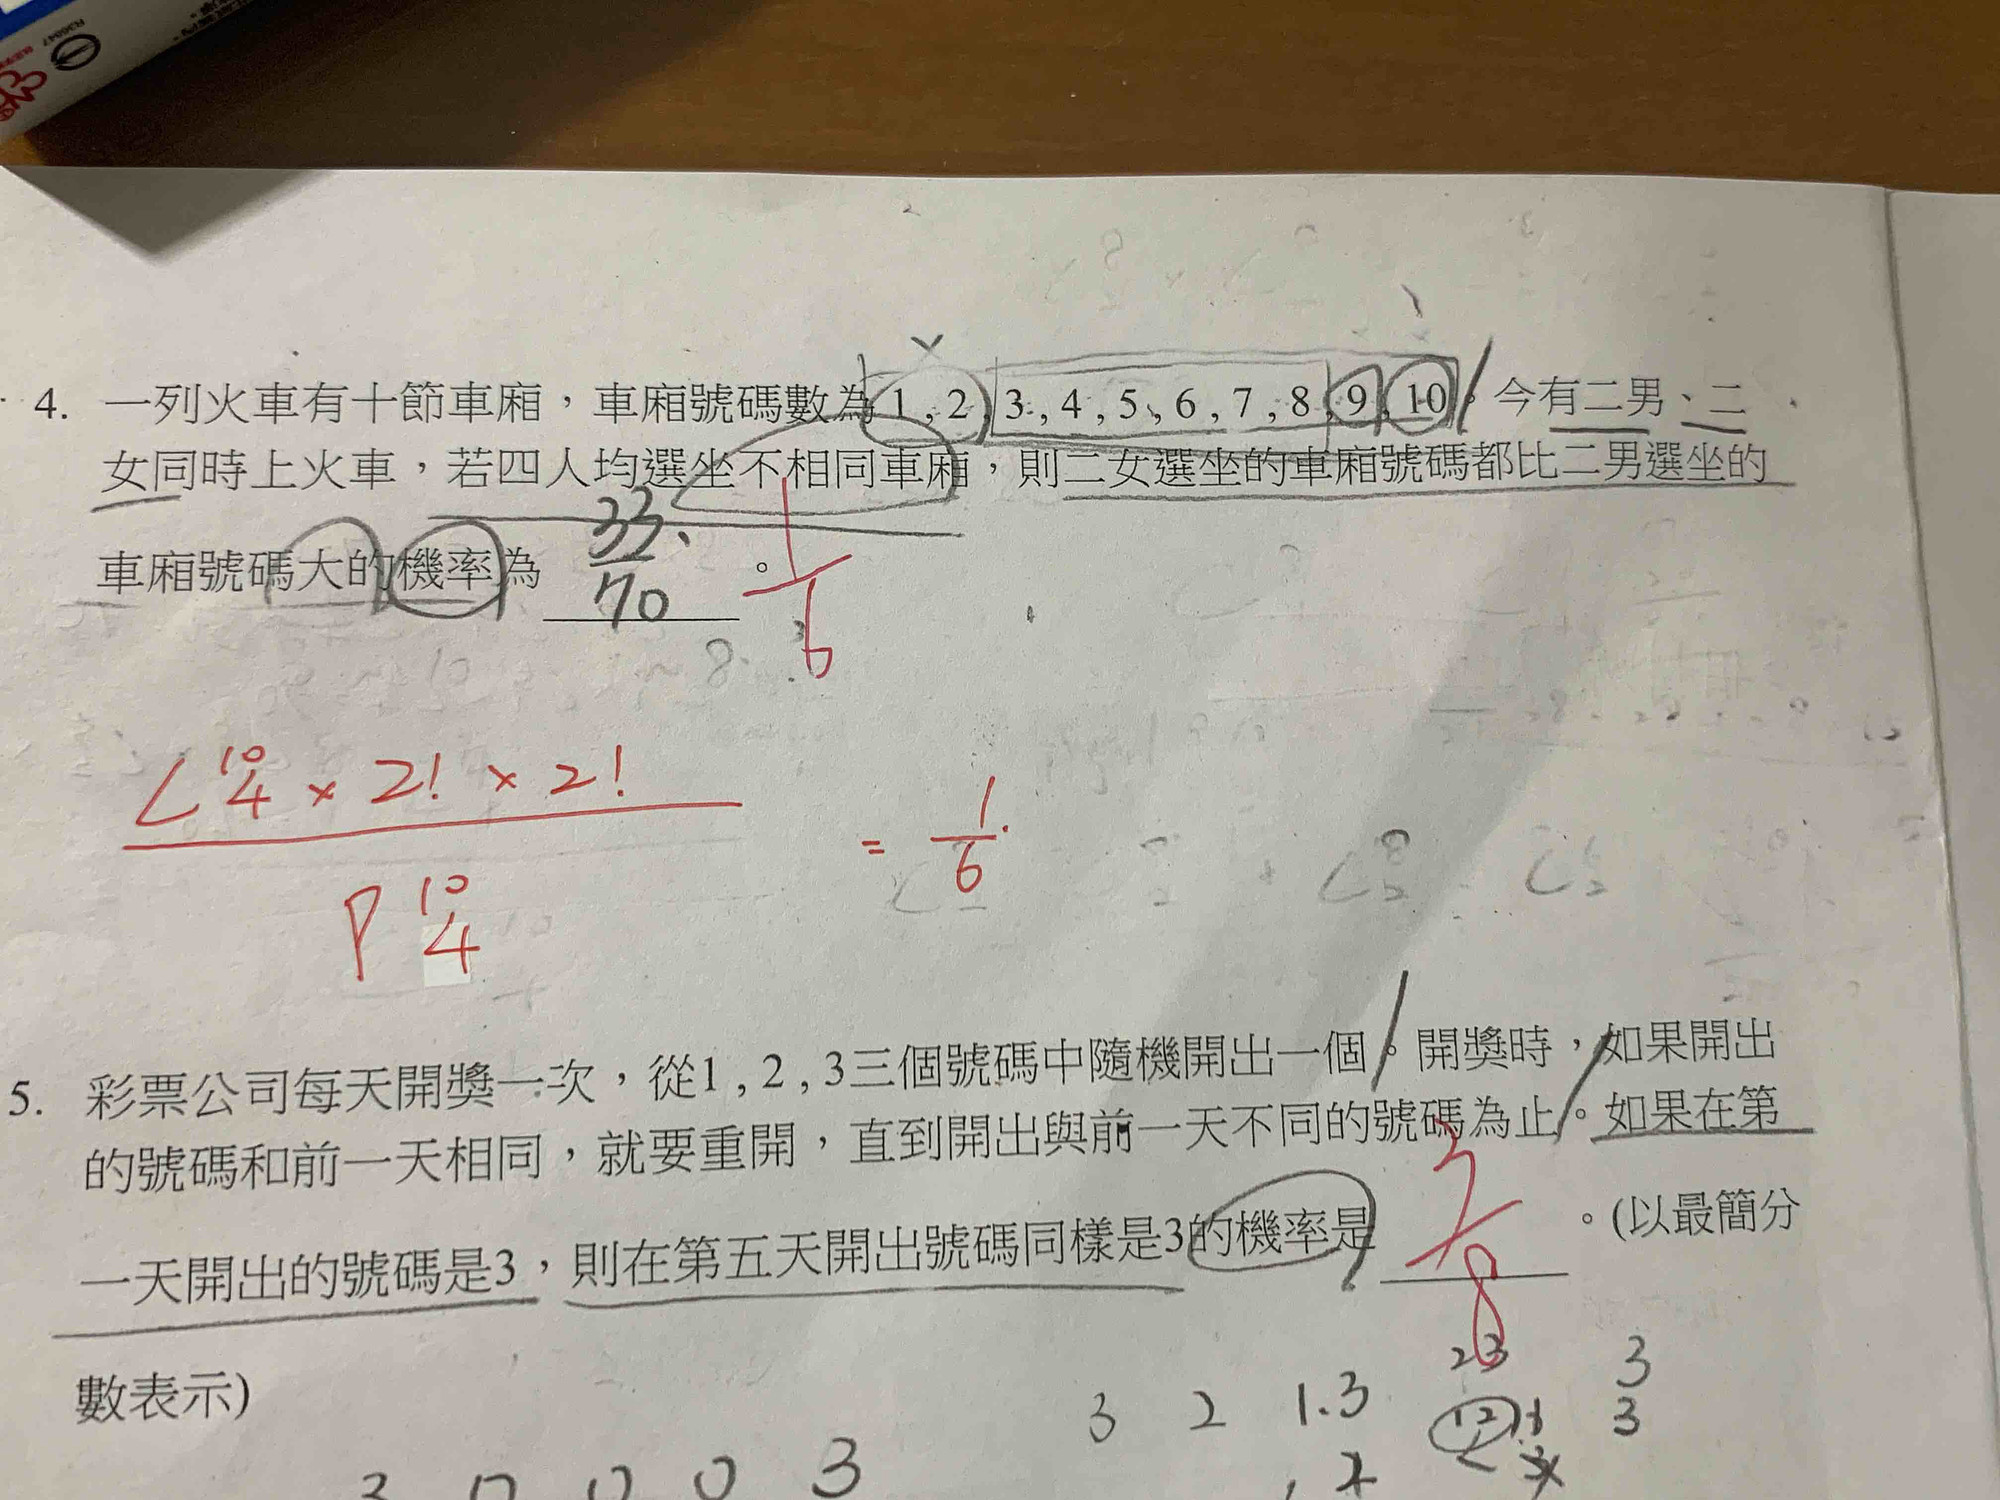 4. 一列火車有十節車廂，車廂號碼數為1 , 2 , 3 , 4 , 5 , 6 , 7 , 8 , 9 , 10。今有二男、二
女同時上火車，若四人均選坐不相同車廂，則二女選坐的車廂號碼都比二男選坐的
車廂號碼大的機率為 33/70 。 1/6
C 10 4 × 2! × 2!
= 1/6
P 10 4
5. 彩票公司每天開獎一次，從1 , 2 , 3三個號碼中隨機開出一個。開獎時，如果開出
的號碼和前一天相同，就要重開，直到開出與前一天不同的號碼為止。如果在第
一天開出的號碼是3，則在第五天開出號碼同樣是3的機率是 3/8 。(以最簡分
數表示)
3 2 1.3 23 3
12 3
3 0 0 0 3